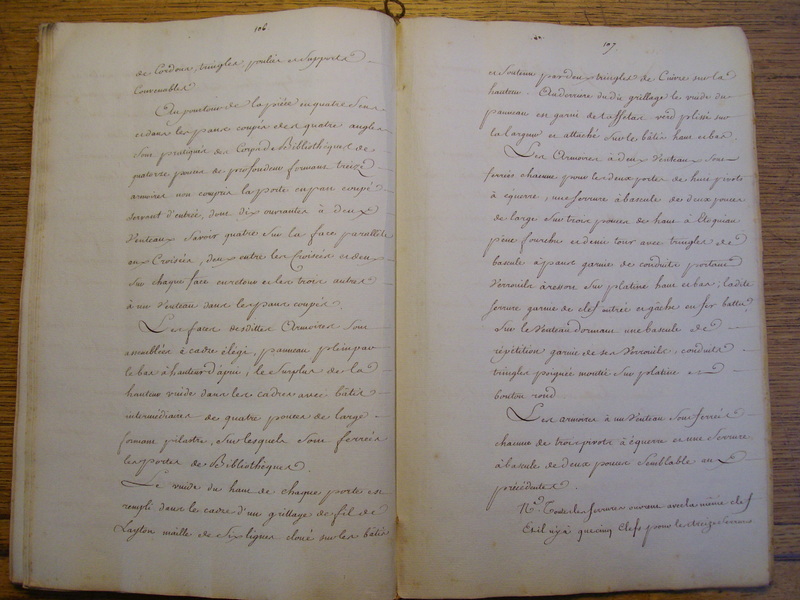 106.
de Cordons, tringles, poulies et Supports
Convenables
Au pourtour de la pièce en quatre Sens
et dans les pans coupés des quatre angles
Sont pratiqués des Corps de Bibliothèques de
quatorze pouces de profondeur formant treize
armoires non compris la porte en pan coupé
Servant d'entrée, dont dix ouvrantes à deux
Venteaux Savoir quatre Sur la face parallèle
aux Croisées, deux entre les Croisées et deux
Sur chaque face en retour et les trois autres
à un Venteau dans les pans coupés.
Les faces desdittes Armoires Sont
assemblées à cadre élégi, panneau plein par
le bas à hauteur d'apui, le Surplus de la
hauteur vuide dans les cadres avec bâtis
intermédiaires de quatre pouces de large
formant pilastre, Sur lesquels Sont ferrées
les portes de Bibliothèques.
Le vuide du haut de chaque porte est
rempli dans le cadre d'un grillage de fil de
Layton maille de Six lignes cloué Sur les bâtis
107.
et Soutenu par deux tringles de Cuivre Sur la
hauteur. Au derrière dudit grillage le vuide du
panneau est garni de taffetas verd plissé Sur
la largeur et attaché Sur le bâtis haut et bas.
Les Armoires à deux Venteaux Sont
ferrées chacune pour les deux portes de huit pivots
à équerre, une ferrure à bascule de deux pouces
de large Sur trois pouces de haut à
pêne fourchu et demi tour avec tringles de
bascule à panse garnie de conduits portant
Verrouils à ressort Sur platine haut et bas; ladite
ferrure garnie de clef mitrée et gâche en fer battu,
Sur le Venteau dormant une bascule de
répétition garnie de ses Verrouils, conduits
tringles poignée montée Sur platine et
bouton rond
Les armoires à un Venteau Sont ferrées
chacune de trois pivots à équerre et une Serrure
à bascule de deux pouces Semblable aux
précédentes.
Na. Toutes les ferrures ouvrent avec la même clef
Et il n'y a que cinq Clefs pour les treize Serrures